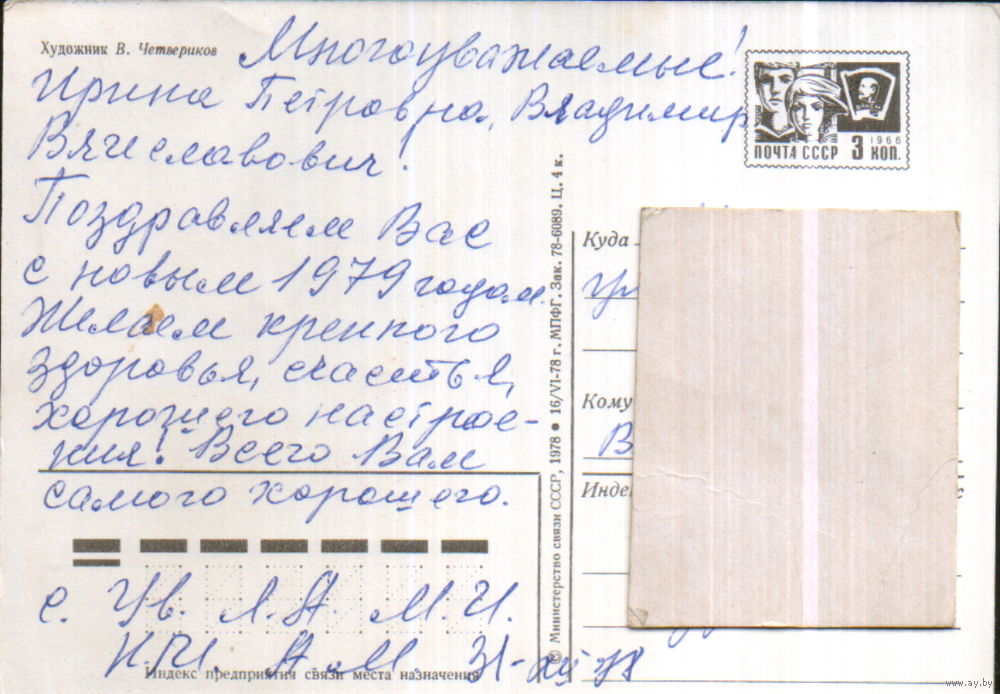 Художник В. Четвериков
Многоуважаемые!
Ирина Петровна, Владимир
Вячеславович!
Поздравляем Вас
с новым 1979 годом.
Желаем крепкого
здоровья, счастья,
хорошего настрое-
ния! Всего Вам
самого хорошего.
с. Ув. Л.А. М.И.
Н.И. А.М. 31-XII-78
Индекс предприятия связи места назначения
© Министерство связи СССР, 1978 ● 16/VI-78 г. МПФГ. Зак. 78-6089. Ц. 4 к.
ПОЧТА СССР 3 КОП.
1966
Куда
ул
Кому
В
Инде
www.ay.by